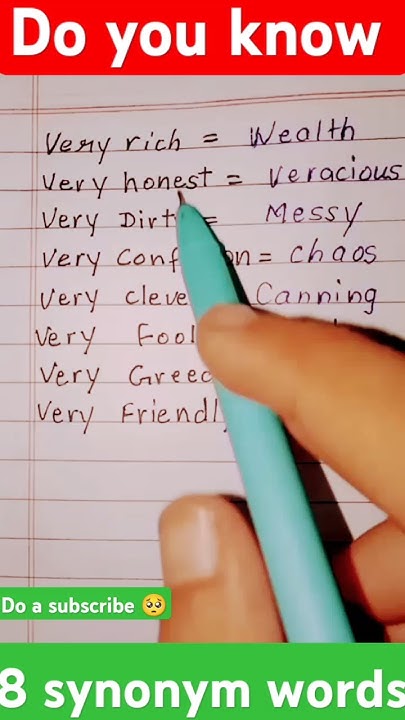 Do you know
Very rich = Wealth
Very honest = Veracious
Very Dirt = Messy
Very Conf on = Chaos
Very Cleve Canning
Very Fool
Very Greed
Very Friendly
Do a subscribe 🥺
8 synonym words